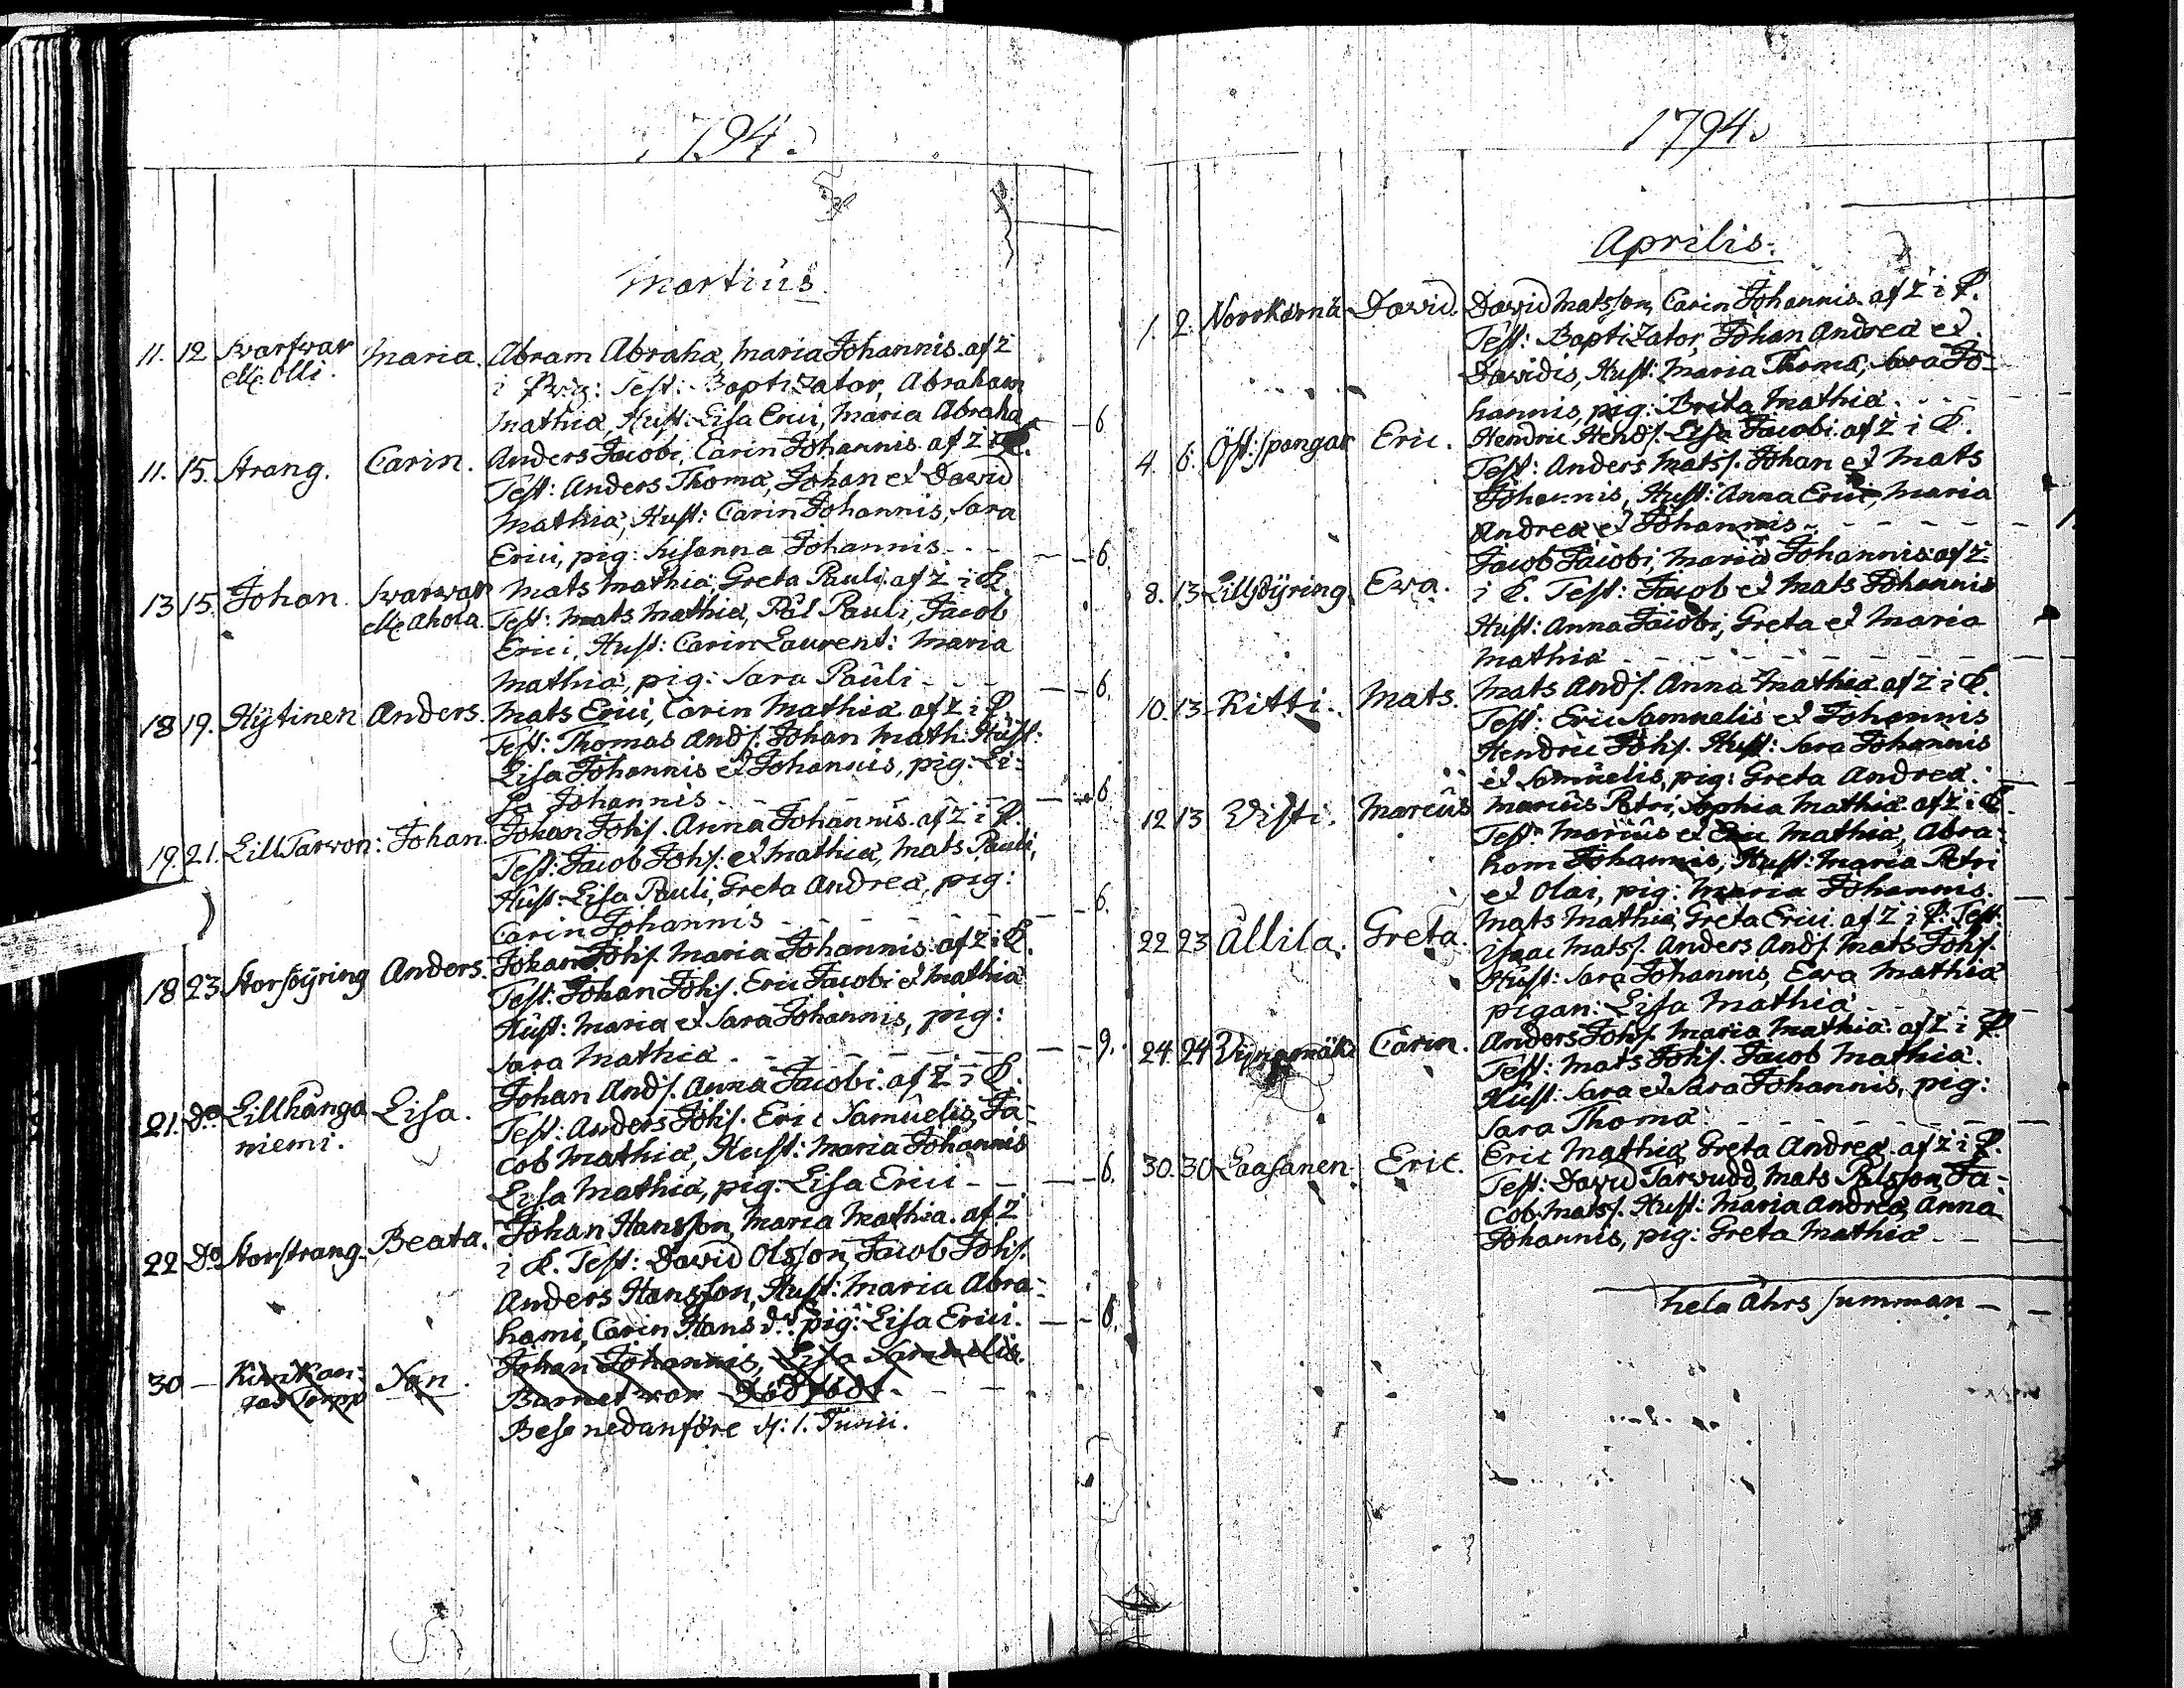 1794.
Martius.
11. 12. Svartvar Maria. Abram Abrahā, Maria Johannis. af Z
Olli. i Pvig: Test: Baptizator, Abraham
Mathiā, Hust: Lisa Erici, Maria Abrahā - 6.
11. 15. Strang. Carin. Anders Jacobi, Carin Johannis. af Z i
Test: Anders Thomā, Johan et David
Mathiā, Hust: Carin Johannis, Sara
Erici, pig: Susanna Johannis - - - 6.
13 15. Johan Mats Mathiā, Greta Pauli. af Z i P.
Ahola. Test: Mats Mathiā, Pål Pauli, Jacob
Erici, Hust: Carin Laurent: Maria
Mathiā, pig: Sara Pauli - - - 6.
18 19. Hytinen Anders. Mats Erici, Carin Mathiā. af Z i P.
Test: Thomas Ands. Johan Math: Hust:
Lisa Johannis et Johannis, pig: Li-
sa Johannis - - - 6
19. 21. LillTarvon: Johan. Johan Johs. Anna Johannis. af Z i P.
Test: Jacob Johs. et Mathiā, Mats Pauli,
Hust: Lisa Pauli, Greta Andreā, pig:
Carin Johannis - - - 6.
18 23 Storsöyring Anders. Johan Johs. Maria Johannis. af Z i P.
Test: Johan Johs. Eric Jacobi et Mathiā
Hust: Maria et Sara Johannis, pig:
Sara Mathiā. - - - 9.
21. Do Lillkånga Lisa. Johan Ands. Anna Jacobi. af Z i P.
niemi. Test: Anders Johs. Eric Samuelis, Ja-
cob Mathiā, Hust: Maria Johannis
Lisa Mathiā, pig: Lisa Erici - - - 6.
22 Do Storstrang. Beata. Johan Hansson, Maria Mathiā. af Z
i P. Test: David Olsson, Jacob Johs.
Anders Hansson, Hust: Maria Abra-
hami, Carin Hans dr. pig: Lisa Erici. - - 6.
30 - Johan Johannis, Lisa Samuelis.
Barnet var dödfödt - - -
Bese nedanföre d: 1. Junii.
1794.
Aprilis.
1. 2. Norrkarnā David. David Matsson, Carin Johannis. af Z i P.
Test: Baptizator, Johan Andreā et
Davidis, Hust: Maria Thomā, Sara Jo-
hannis, pig: Brita Mathiā. - - -
4. 6. Öst:spangar Eric. Hendric Hends. Lisa Jacobi. af Z i P.
Test: Anders Mats. Johan et Mats
Johannis, Hust: Anna Erici, Maria
Andreā et Johannis - - - 1.
Jacob Jacobi, Maria Johannis. af Z
8. 13 Lillsöyring. Eva. i P. Test: Jacob et Mats Johannis
Hust: Anna Jacobi, Greta et Maria
Mathiā - - -
10. 13 Kitti. Mats. Mats Ands. Anna Mathiā. af Z i P.
Test: Eric Samuelis et Johannis
Hendric Johs. Hust: Sara Johannis
et Samuelis, pig: Greta Andreā.
12 13 Visti. Marcus Marcus Petri, Sophia Mathiā. af Z i P.
Test: Marcus et Eric Mathiā, Abra-
ham Johannis, Hust: Maria Petri
et Olai, pig: Maria Johannis.
22 23 Ållila. Greta. Mats Mathiā, Greta Erici. af Z i P. Test:
Isaac Mats. Anders Ands. Mats Johs.
Hust: Sara Johannis, Eva Mathiā
pigan: Lisa Mathiā - - -
24. 24 Carin. Anders Johs. Maria Mathiā. af Z i P.
Test: Mats Johs. Jacob Mathiā.
Hust: Sara et Sara Johannis, pig:
Sara Thomā. - - -
30. 30 Laasanen. Eric. Eric Mathiā, Greta Andreā. af Z i P.
Test: David Tarvudd, Mats Pålsson, Ja-
cob Mats. Hust: Maria Andreā, Anna
Johannis, pig: Greta Mathiā - -
hela åhrs summan - -